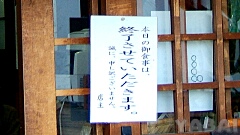 本日の御食事は、
終了させていただきます。
誠に、申し訳ございません。
店主